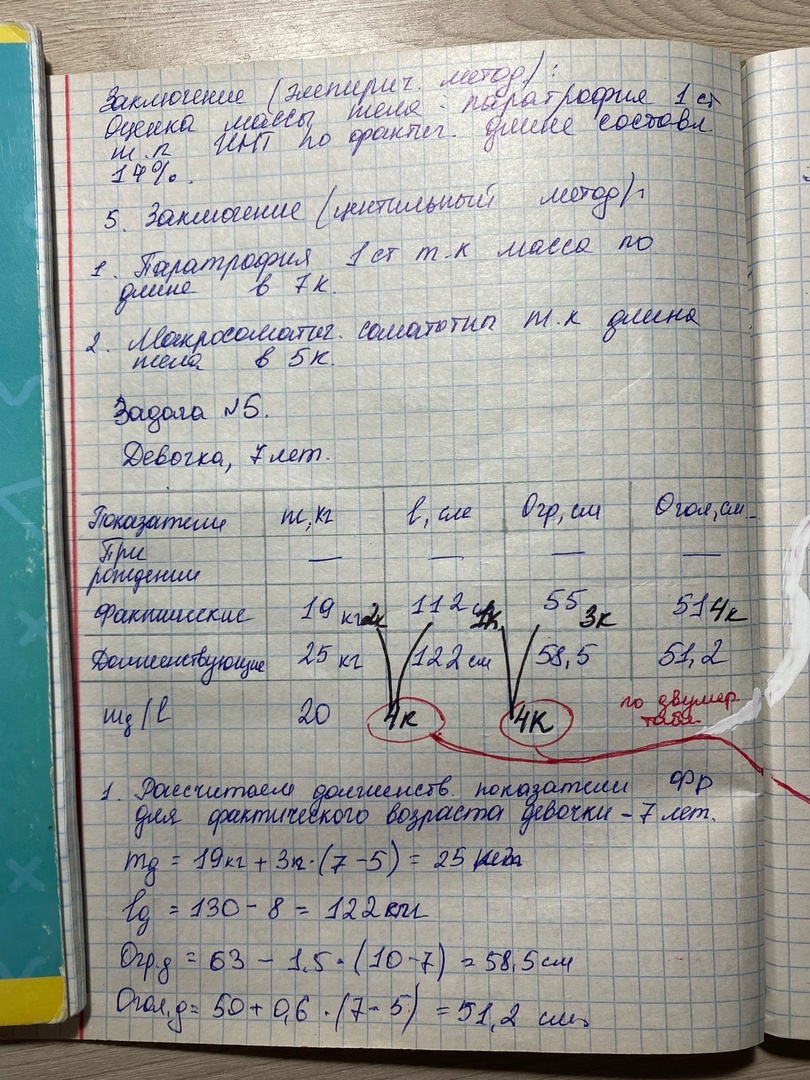 Заключение (эмпирич. метод):
Оценка массы тела - паратрофия 1 ст
т.к ИНП по фактич. длине составл
17%.
5. Заключение (центильный метод):
1. Паратрофия 1 ст т.к масса по
длине в 7к.
2. Макросоматич. соматотип т.к длина
тела в 5к.
Задача №5.
Девочка, 7 лет.
Показатели m, кг l, см Огр, см Огол, см
При — — — —
рождении
Фактические 19 кг 2к 112 см 1к 55 3к 51 4к
Долженствующие 25 кг 122 см 58,5 51,2
mд/l 20 4к 4к по двумер
табл.
1. Рассчитаем долженств. показатели ФР
для фактического возраста девочки - 7 лет.
mд = 19кг + 3кг·(7-5) = 25
lд = 130 - 8 = 122
Огр.д = 63 - 1,5·(10-7) = 58,5 см
Огол.д = 50 + 0,6·(7-5) = 51,2 см